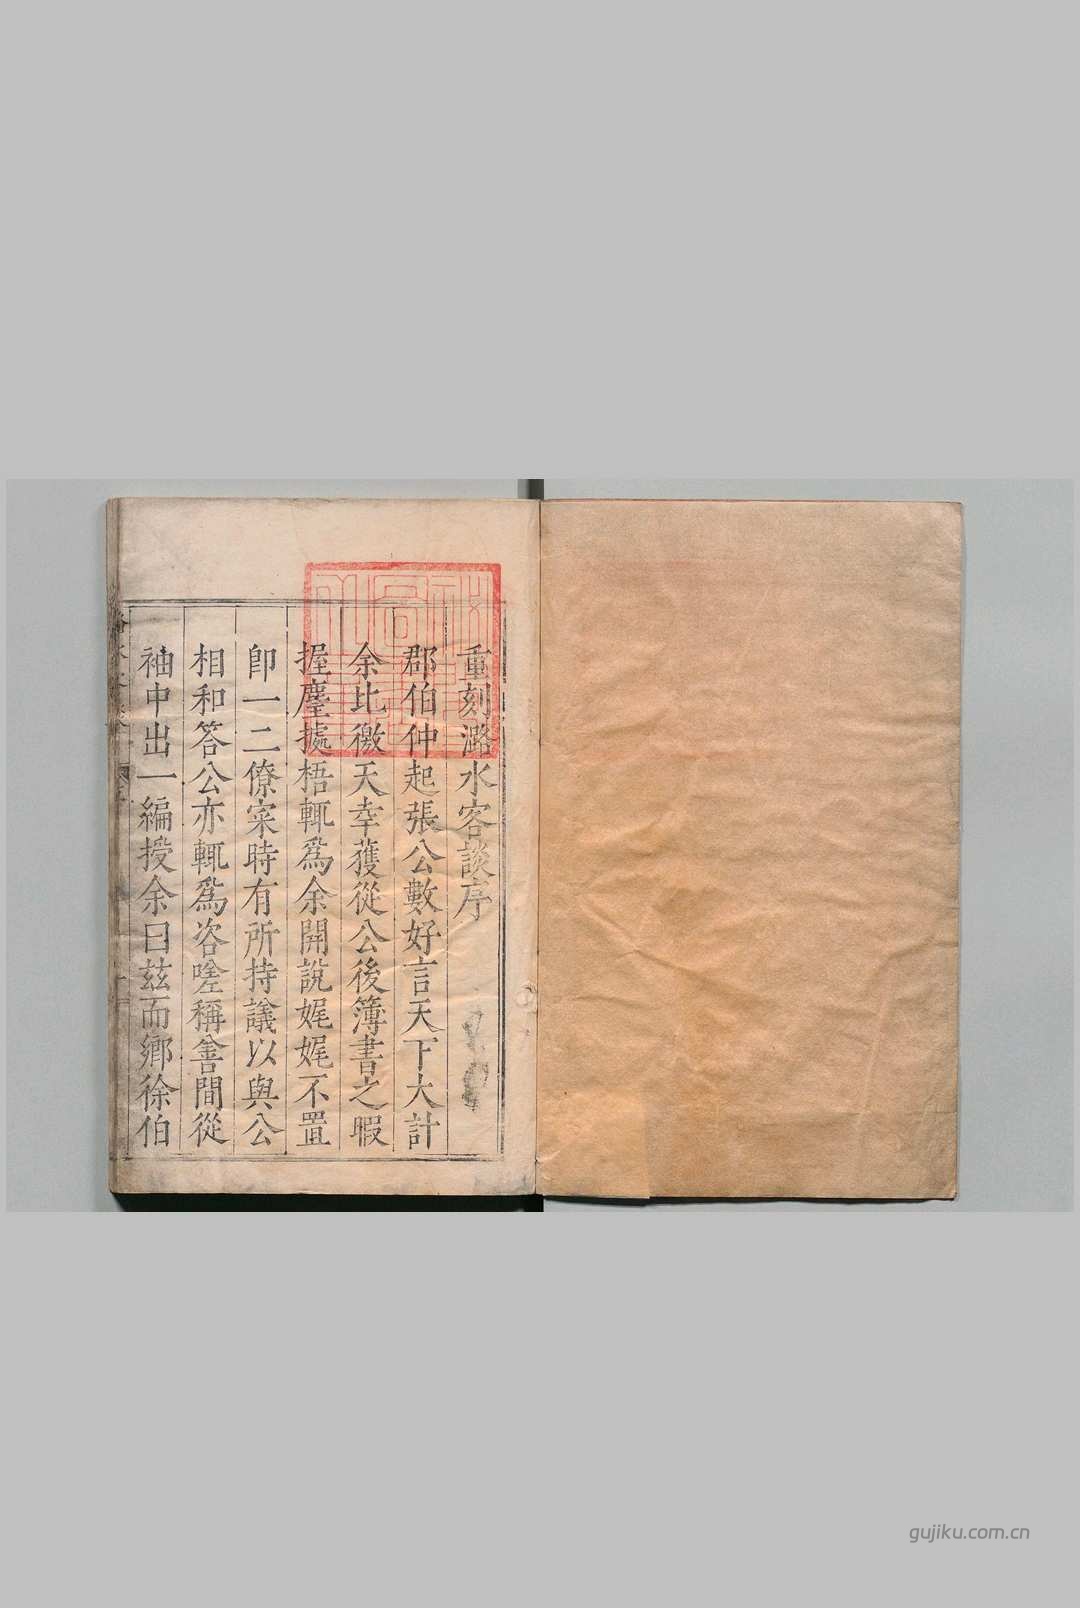 重刻潞水客談序
郡伯仲起張公數好言天下大計
余比徼天幸獲從公後簿書之暇
握麈據梧輒爲余開說娓娓不置
卽一二僚寀時有所持議以與公
相和答公亦輒爲咨嗟稱善間從
袖中出一編授余曰茲而鄉徐伯
gujiku.com.cn